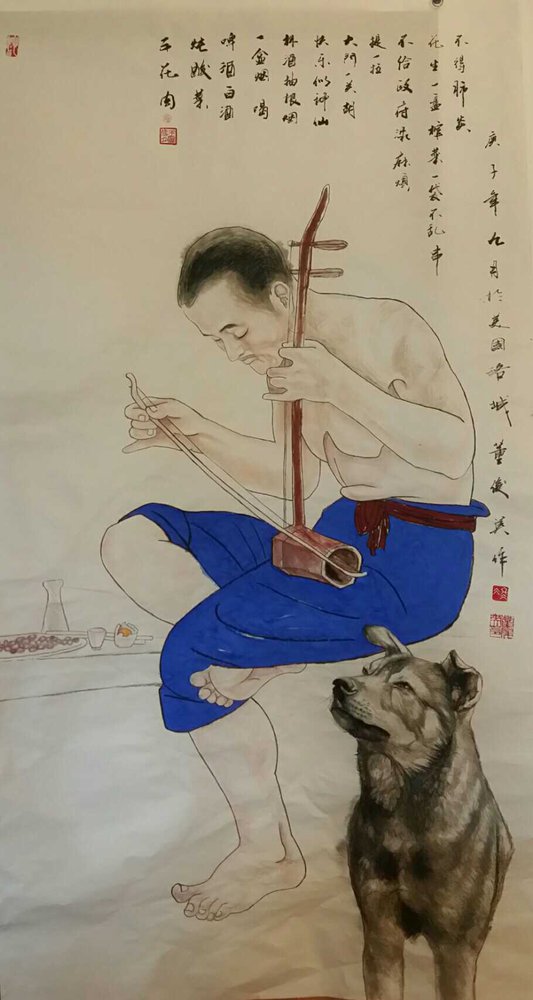 五花肉
炖酸菜
啤酒白酒
一盒烟喝
杯酒抽根烟
快乐似神仙
大门一关胡
提一拉
不给政府添麻烦
花生一盘榨菜一袋不乱串
不得肺炎
庚子年九月於美國洛城董俊英作